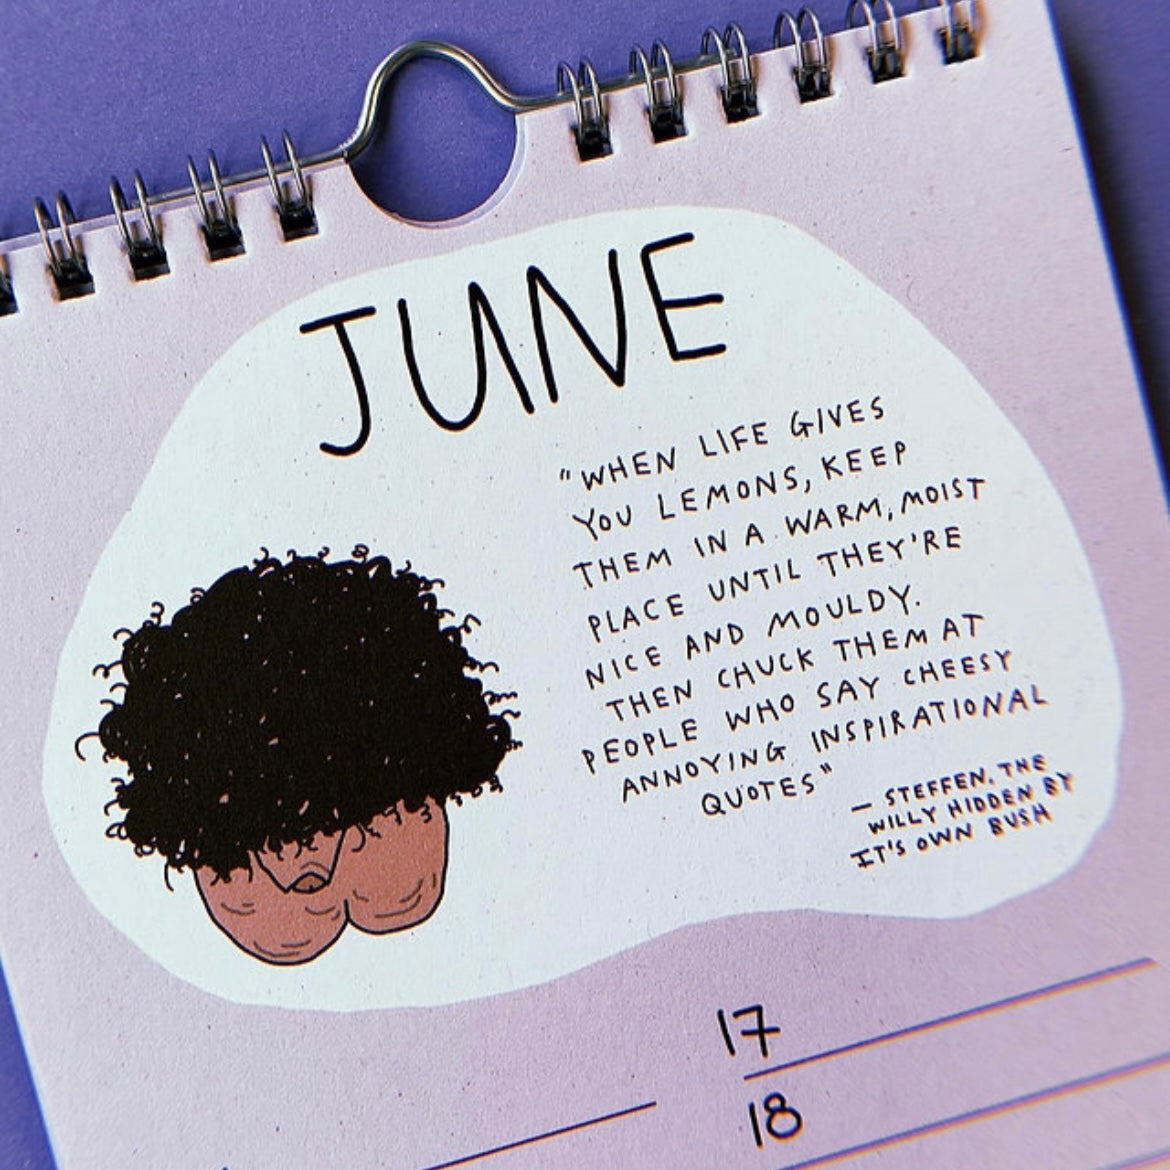 JUNE
"WHEN LIFE GIVES
YOU LEMONS, KEEP
THEM IN A WARM, MOIST
PLACE UNTIL THEY'RE
NICE AND MOULDY.
THEN CHUCK THEM AT
PEOPLE WHO SAY CHEESY
ANNOYING INSPIRATIONAL
QUOTES"
— STEFFEN, THE
WILLY HIDDEN BY
IT'S OWN BUSH
17
18